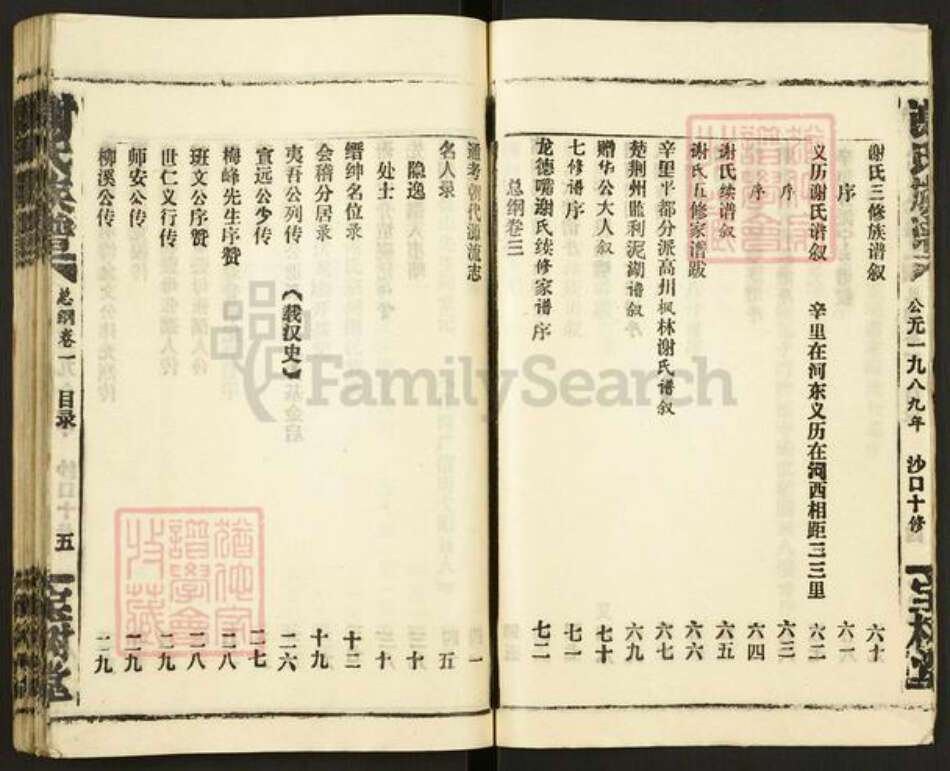 谢氏三修族谱叙 六十
序 六一
义历谢氏谱叙 辛里在河东义历在河西相距三三里 六二
序 六三
序 六四
谢氏续谱叙 六五
谢氏五修家谱跋 六六
辛里平都分派高州枫林谢氏谱叙 六七
楚荆州监利泥湖谱叙 六九
赠华公大人叙 七十
七修谱序 七一
龙德嘴谢氏续修家谱序 七二
总纲卷三
公元一九八九年 沙口十修
宝树堂
通考朝代源流志 一
名人录 五
隐逸 十
处士 十
缙绅名位录 十二
会稽分居录 十九
夷吾公列传 《载汉史》 二六
宣远公少传 二七
梅峰先生序赞 二八
班文公序赞 二八
世仁义行传 二九
师安公传 二九
柳溪公传 二九
谢氏族谱
总纲卷一
目录
五
宝树堂
犹他家谱学会收藏
FamilySearch